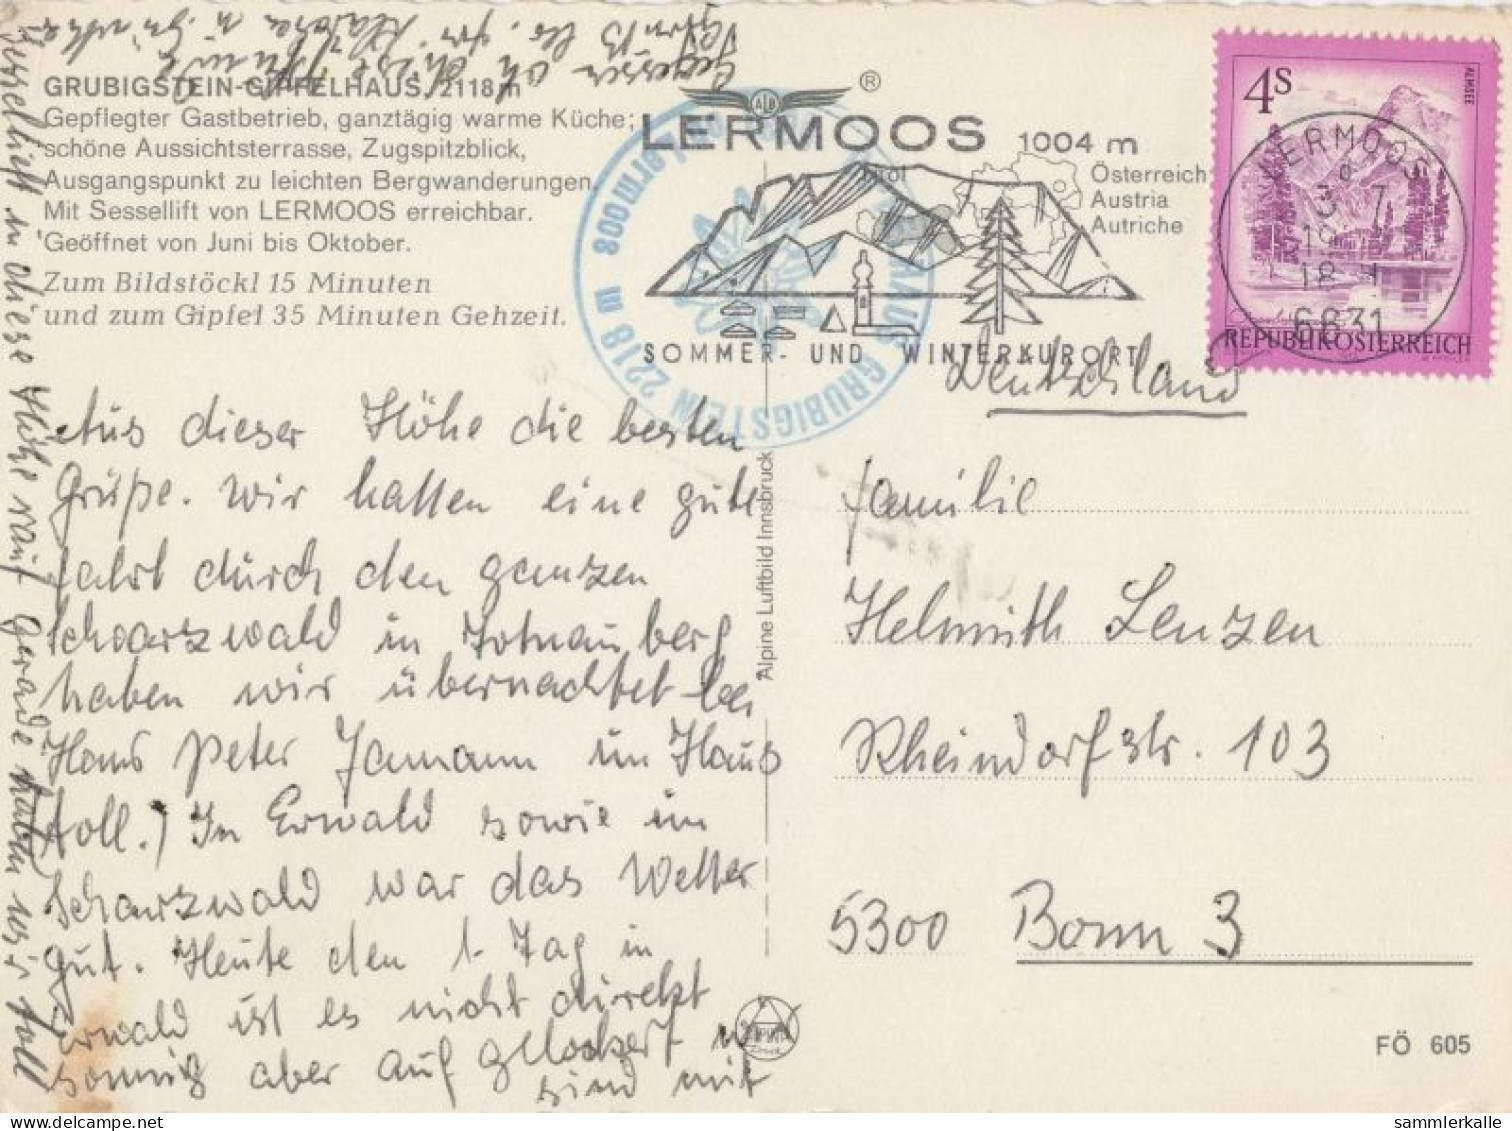 GRUBIGSTEIN-GIPFELHAUS, 2118 m
Gepflegter Gastbetrieb, ganztägig warme Küche;
schöne Aussichtsterrasse, Zugspitzblick,
Ausgangspunkt zu leichten Bergwanderungen.
Mit Sessellift von LERMOOS erreichbar.
Geöffnet von Juni bis Oktober.
Zum Bildstöckl 15 Minuten
und zum Gipfel 35 Minuten Gehzeit.
Aus dieser Höhe die besten
Grüße. Wir hatten eine gute
Fahrt durch den ganzen
Schwarzwald in Totnauberg
haben wir übernachtet bei
Hans Peter Jamann im Haus
toll.) In Erwald sowie im
Schwarzwald war das Wetter
gut. Heute den 1. Tag in
Erwald ist es nicht direkt
sonnig aber aufgelockert
sind mit
Sessellift in diese Höhe rauf gerade haben wir toll
gegessen
Alpine Luftbild Innsbruck
®
LERMOOS 1004 m
Tirol
Österreich
Austria
Autriche
SOMMER- UND WINTERKURORT
GRUBIGSTEIN 2218 m
Lermoos
4S
ALMSEE
REPUBLIK ÖSTERREICH
LERMOOS
6631
Deutschland
Familie
Helmuth Lenzen
Rheindorfstr. 103
5300 Bonn 3
FÖ 605
sammlerkalle